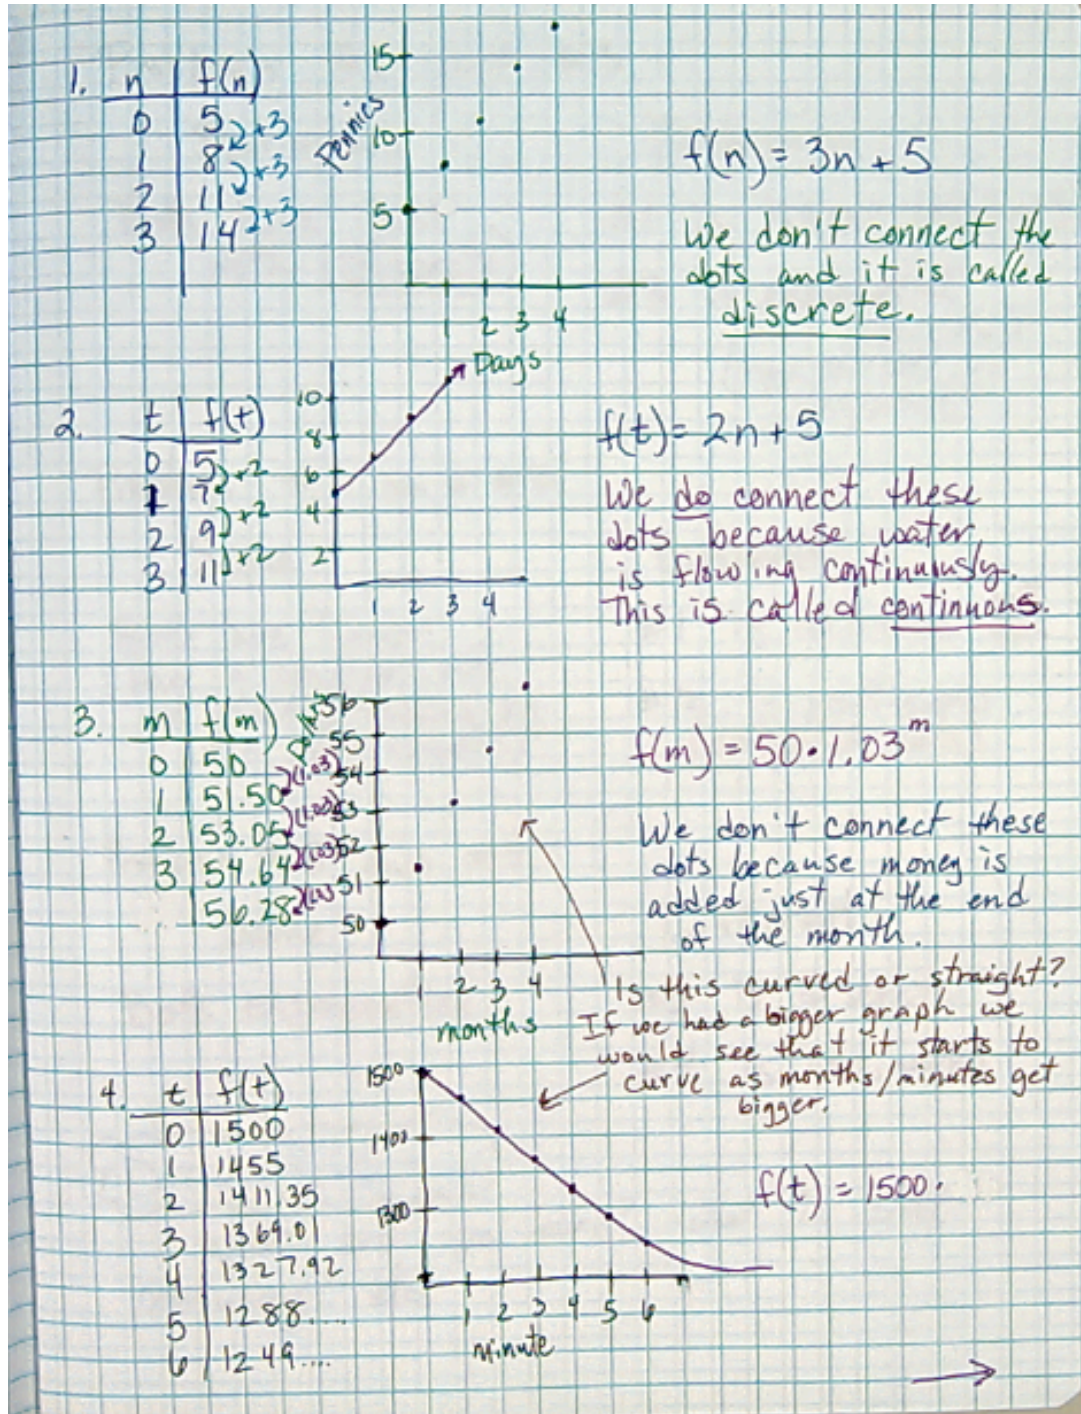 1. n f(n)
0 5
+3
1 8
+3
2 11
+3
3 14
Pennies
15
10
5
1 2 3 4
Days
f(n) = 3n + 5
We don't connect the
dots and it is called
discrete.
2. t f(t)
0 5
+2
1 7
+2
2 9
+2
3 11
10
8
6
4
2
1 2 3 4
f(t) = 2n + 5
We do connect these
dots because water
is flowing continuously.
This is called continuous.
3. m f(m)
0 50
(1.03)
1 51.50
(1.03)
2 53.05
(1.03)
3 54.64
56.28
56
55
54
53
52
51
50
1 2 3 4
months
f(m) = 50·1.03^m
We don't connect these
dots because money is
added just at the end
of the month.
Is this curved or straight?
If we had a bigger graph we
would see that it starts to
curve as months/minutes get
bigger.
4. t f(t)
0 1500
1 1455
2 1411.35
3 1369.01
4 1327.92
5 1288....
6 1249....
1500
1400
1300
1 2 3 4 5 6
minute
f(t) = 1500·